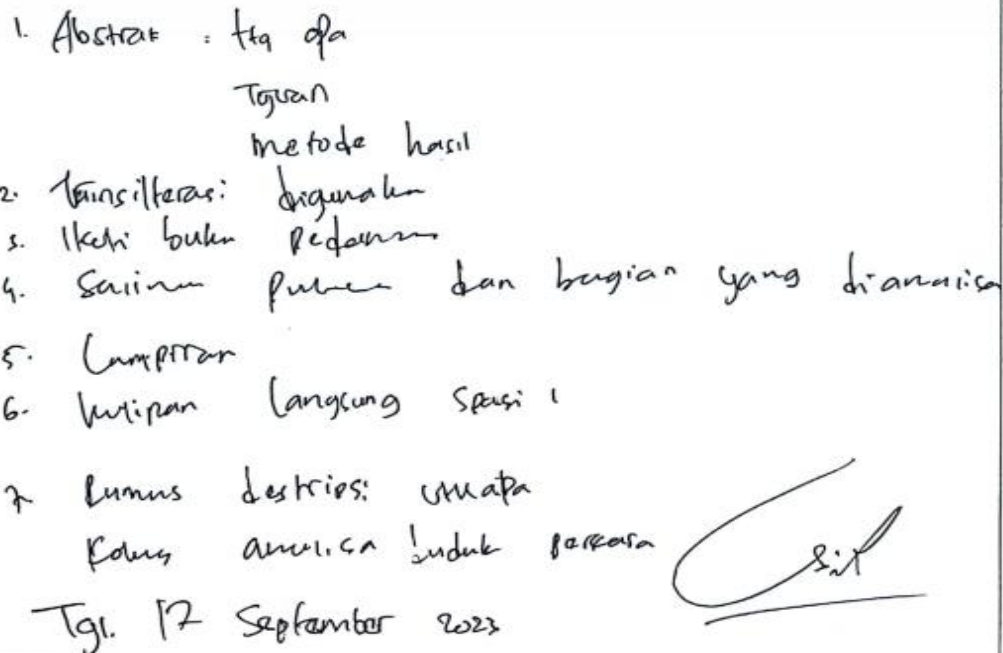 1. Abstrak : ttg apa
Tujuan
metode hasil
2. Transliterasi digunakan
3. Ikuti buku Pedoman
4. Salinan Putusan dan bagian yang dianalisa
5. Lampiran
6. kutipan langsung spasi 1
7 Rumus deskripsi
analisa duduk perkara
Tgl. 17 September 2023